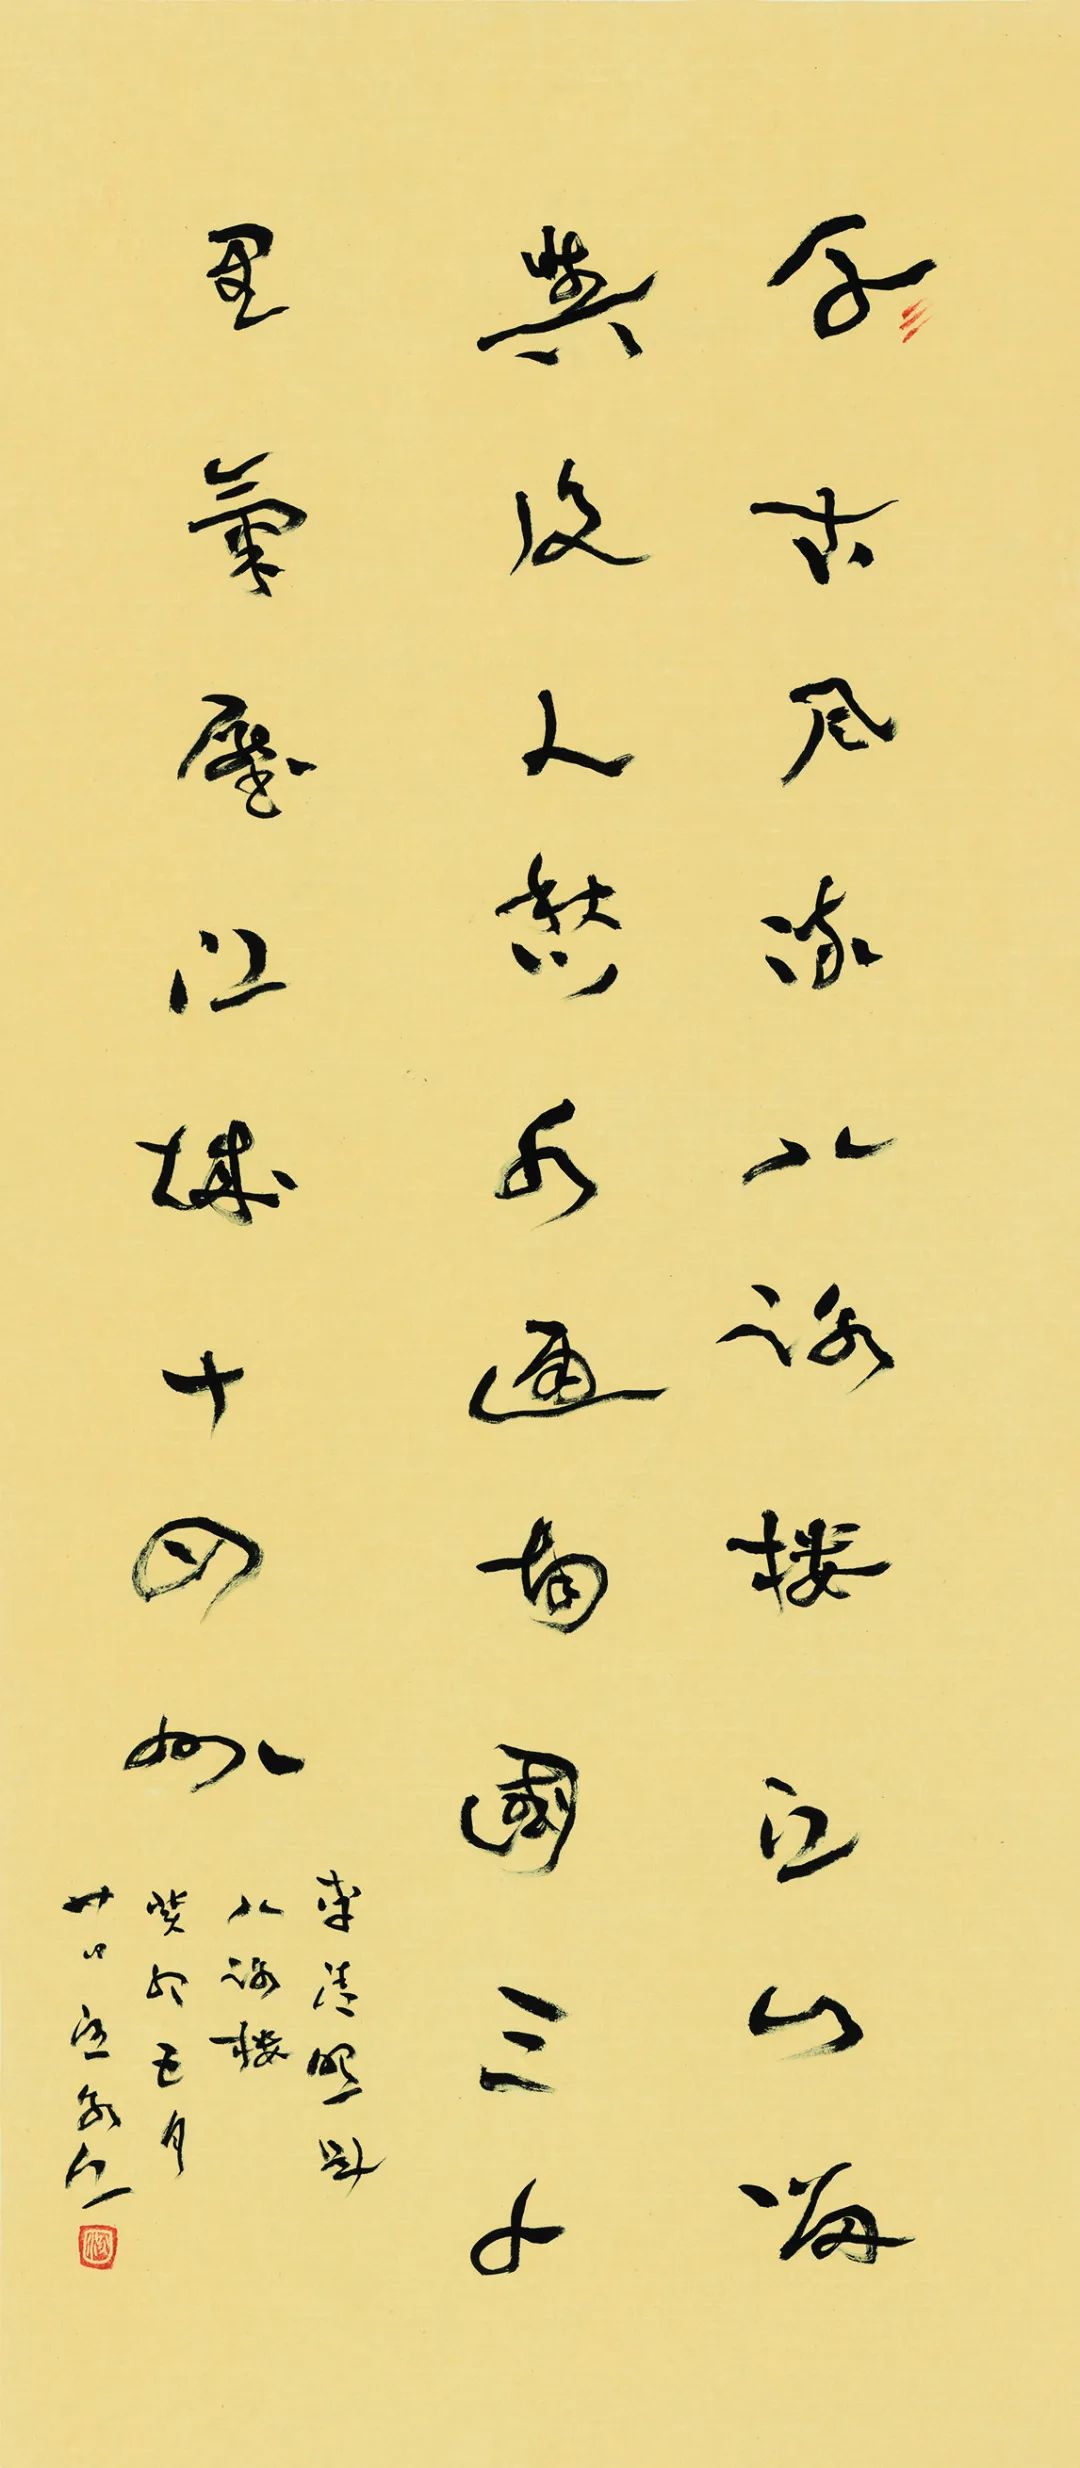 千古风流八咏楼江山留
与后人愁水通南国三千
里气压江城十四州
李清照题
八咏楼
癸卯五月